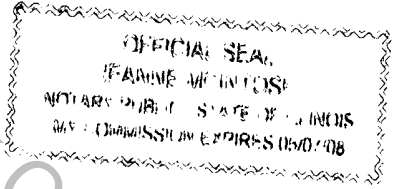 OFFICIAL SEAL
JEANNE MCINTOSH
NOTARY PUBLIC STATE OF ILLINOIS
MY COMMISSION EXPIRES